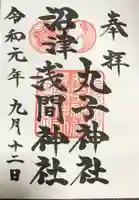 奉拝
丸子神社
沼津
浅間神社
令和元年九月十二日